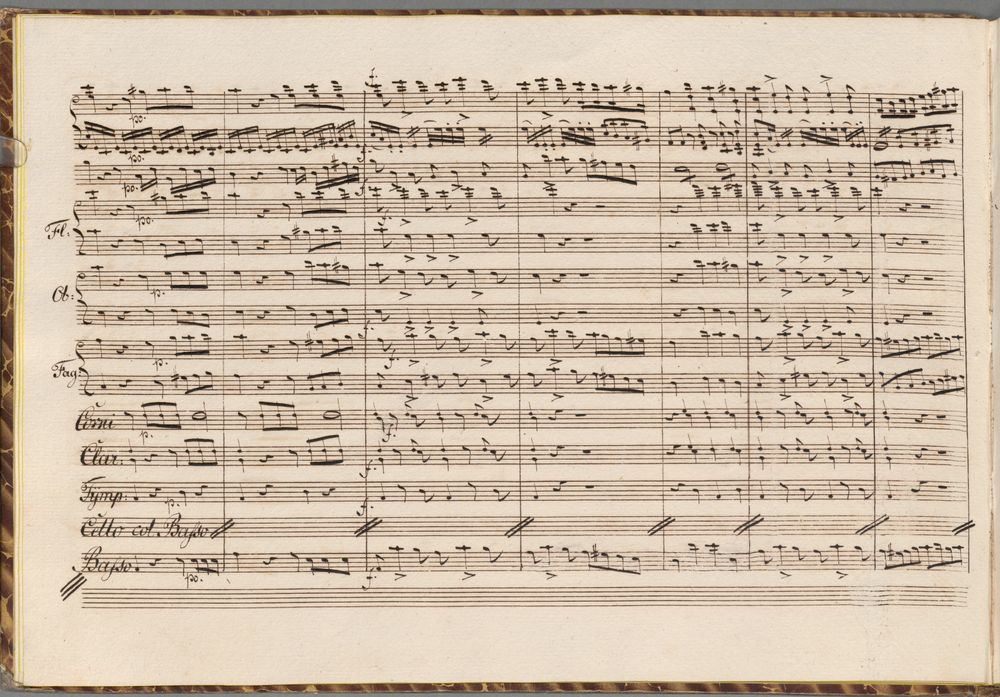 po.
f.
po.
po.
f
Fl:
po.
f.
Ob:
p.
f.
Fag:
p.
f.
Corni
p.
f.
Clar:
f.
Tÿmp:
p.
f.
Cello col. Basso
Basso:
po.
f.